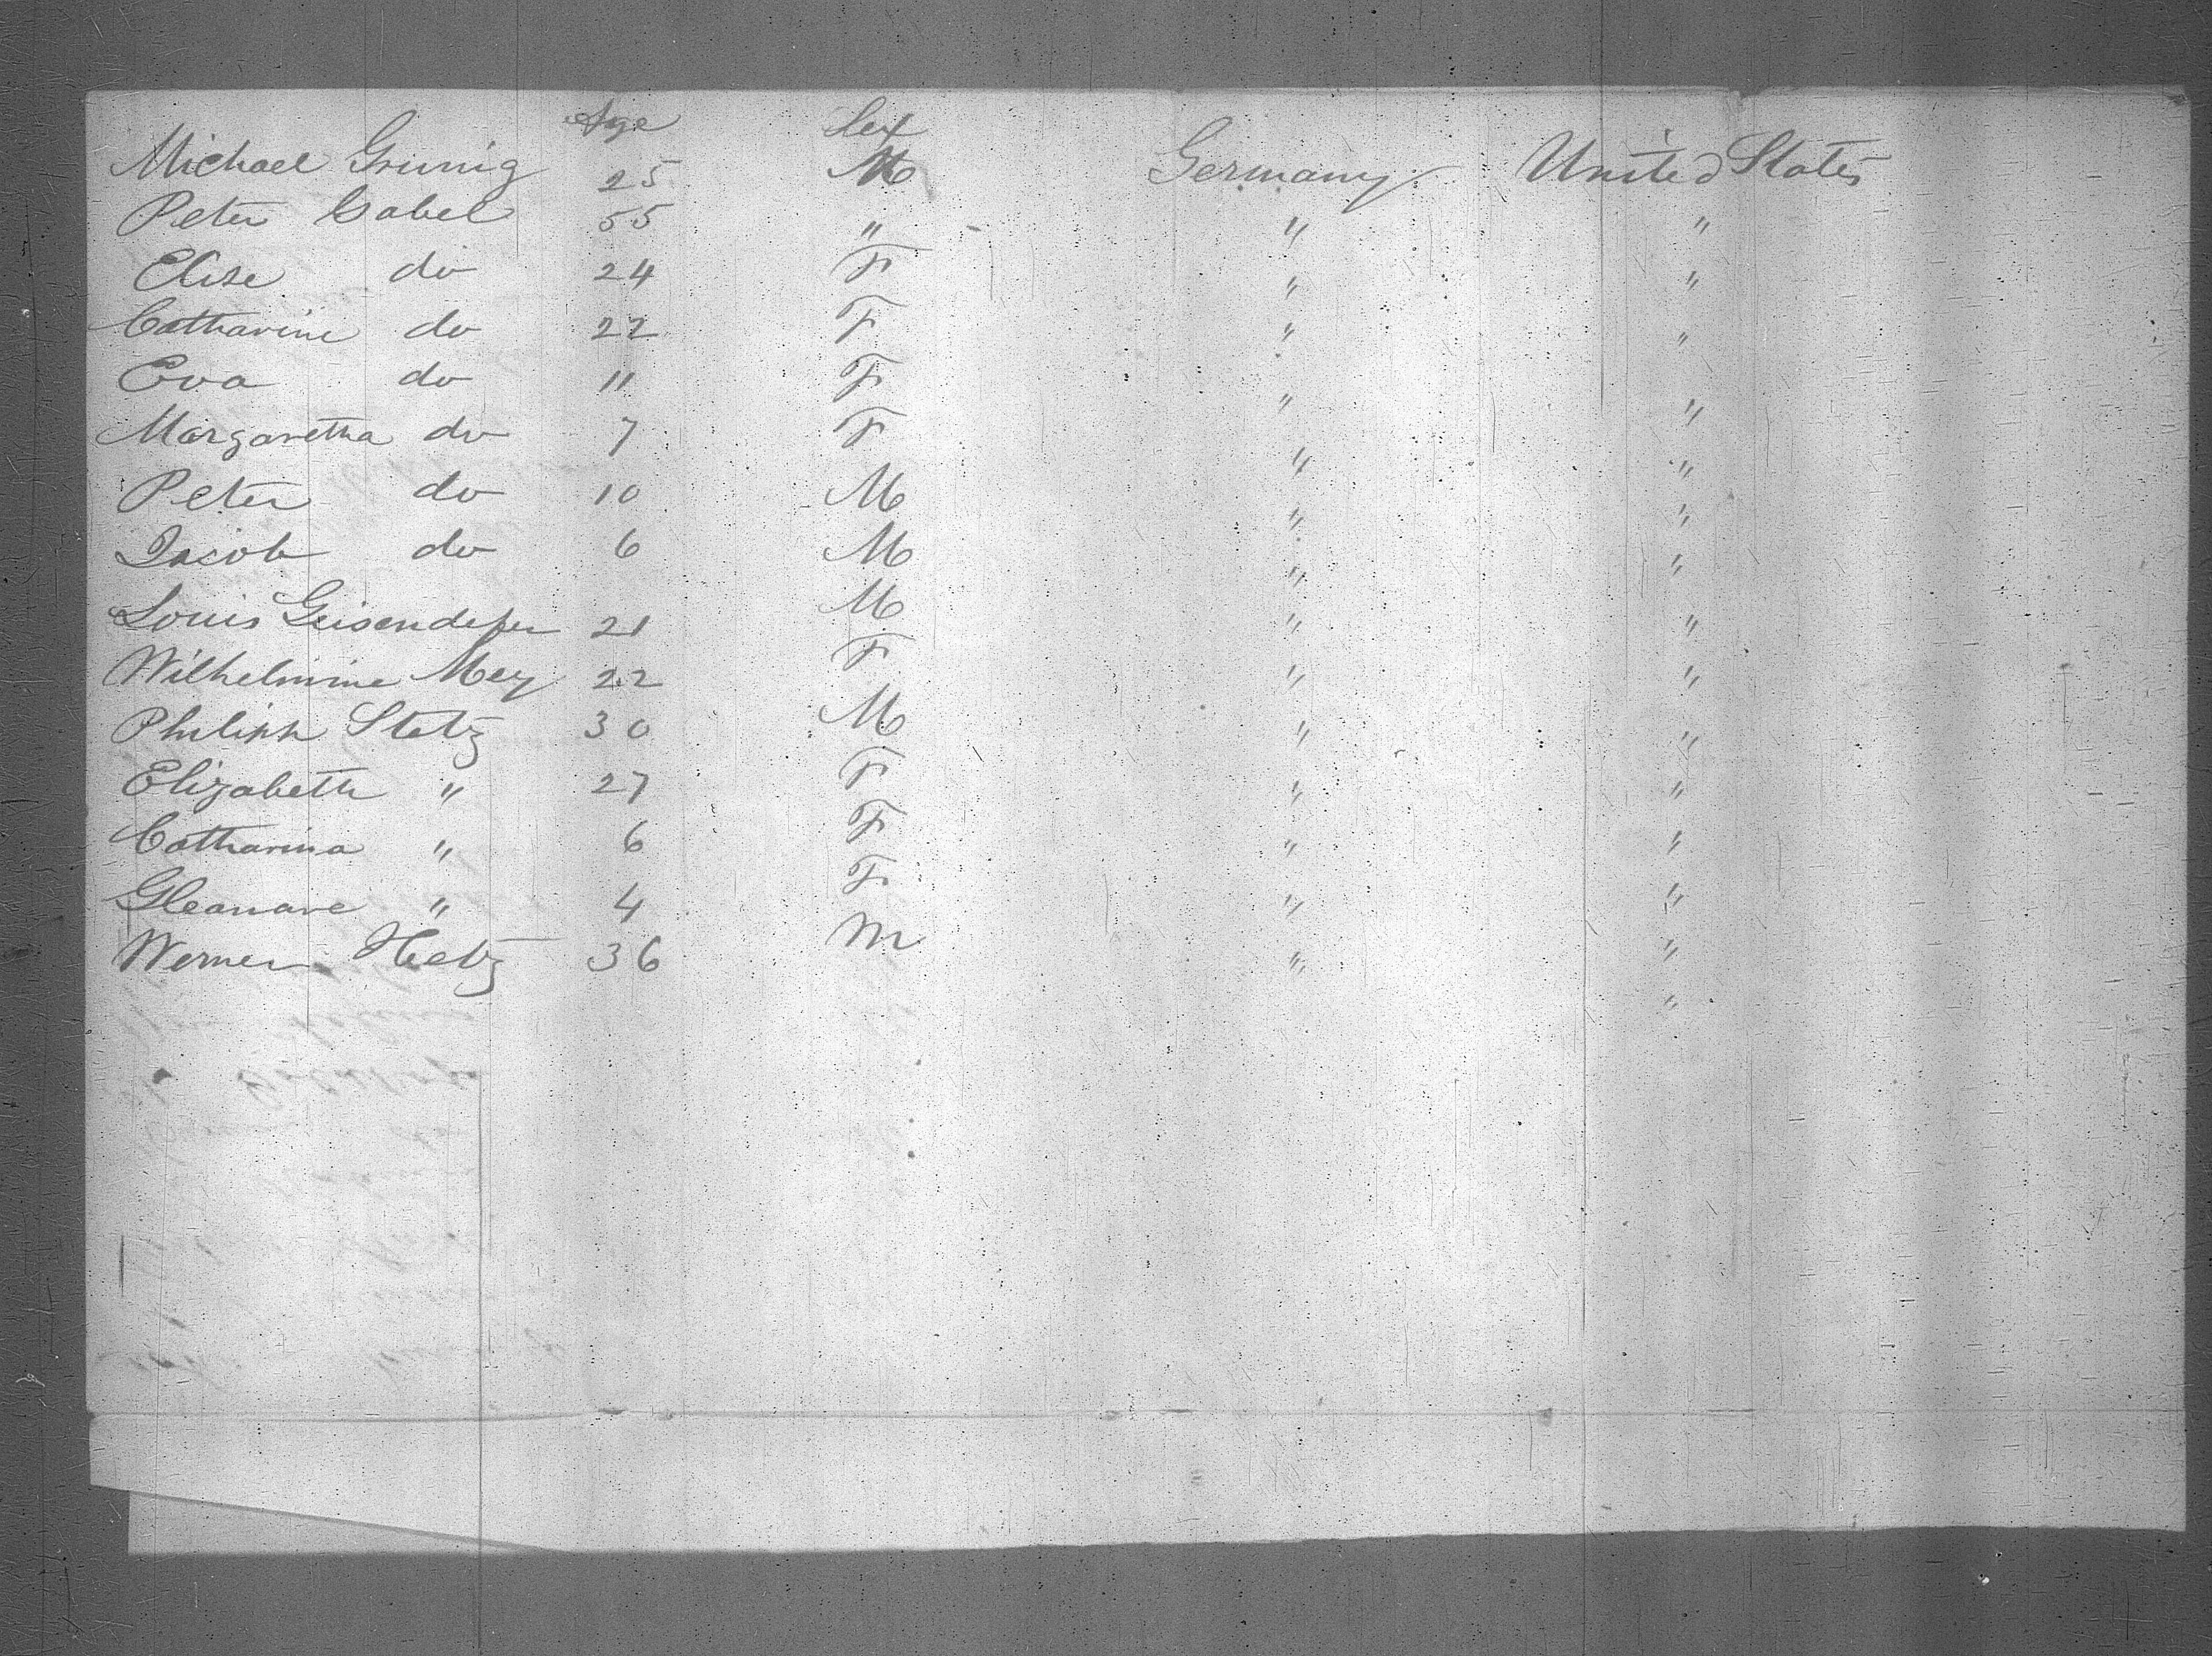 Age Sex
Michael Grunig 25 M Germany United States
Peter Gabel 55 " " "
Elise do 24 F " "
Catharine do 22 F " "
Eva do 11 F " "
Margaretha do 7 F " "
Peter do 10 M " "
Jacob do 6 M " "
Louis 21 M " "
Wilhelmine Mey 22 F " "
Philipp Stetz 30 M " "
Elizabeth " 27 F " "
Catharina " 6 F " "
" 4 F " "
Werner Hetz 36 M " "
"